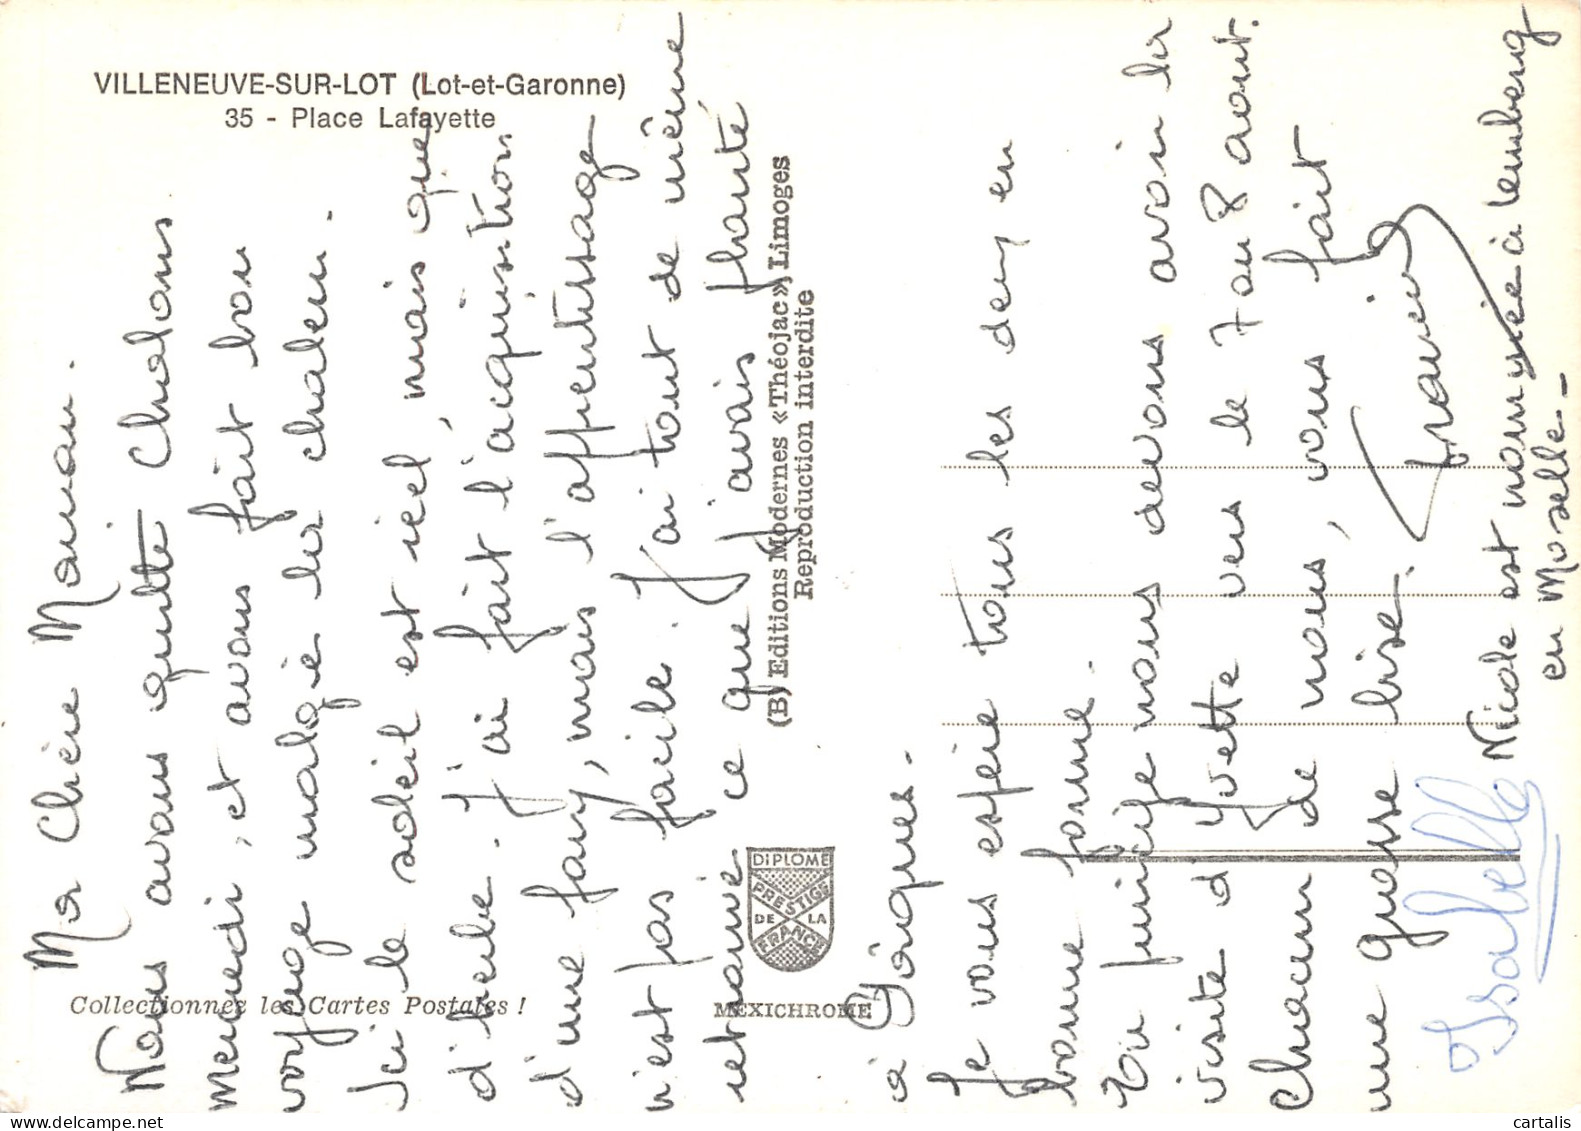 VILLENEUVE-SUR-LOT (Lot-et-Garonne)
35 - Place Lafayette
Ma Chère Maman.
Nous avons quitté Chalons
mercredi, et avons fait bon
voyage malgré la chaleur.
Ici le soleil est réel, mais que
d'herbe. J'ai fait l'acquisition
d'une faux, mais l'apprentissage
n'est pas facile. J'ai tout de même
retrouvé ce que j'avais planté
à Pâques.
Je vous espère tous les deux en
bonne forme.
En principe nous devons avoir la
visite d'Yvette vers le 7 ou 8 aout.
Chacun de nous, vous fait
une grosse bise.
Isabelle
Nicole est nommée à Lemberg
en Moselle.
(B) Editions Modernes «Théojac», Limoges
Reproduction interdite
DIPLOME
PRESTIGE
DE LA
FRANCE
Collectionnez les Cartes Postales !
MEXICHROME
cartalis